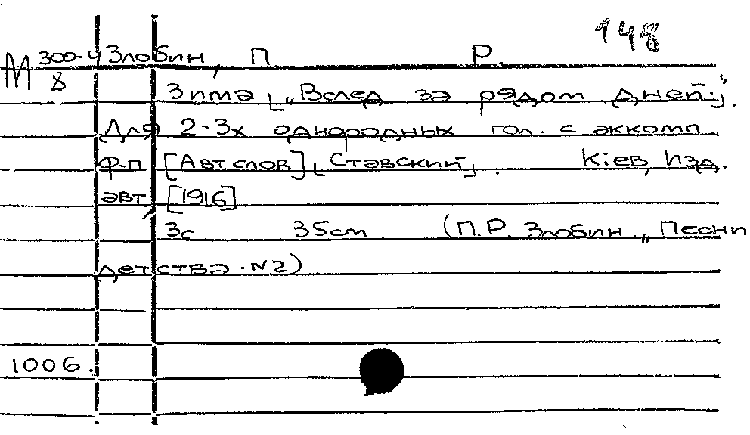 148
М 300-4 Злобин, П Р.
8
Зима [„Вслед за рядом дней".].
Для 2-3х однородных гол. с аккомп.
ф-п [Авт слов] [Ставский]. Кіев, Изд.
авт. [1916]
3с 35см (П.Р. Злобин „Песни
детства. N2)
1006.